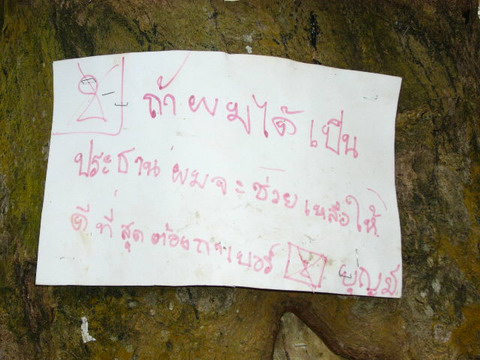 ๕ ถ้าผมได้เป็น
ประธาน ผมจะช่วยเหลือให้
ดีที่สุด ต้องกาเบอร์ ๕